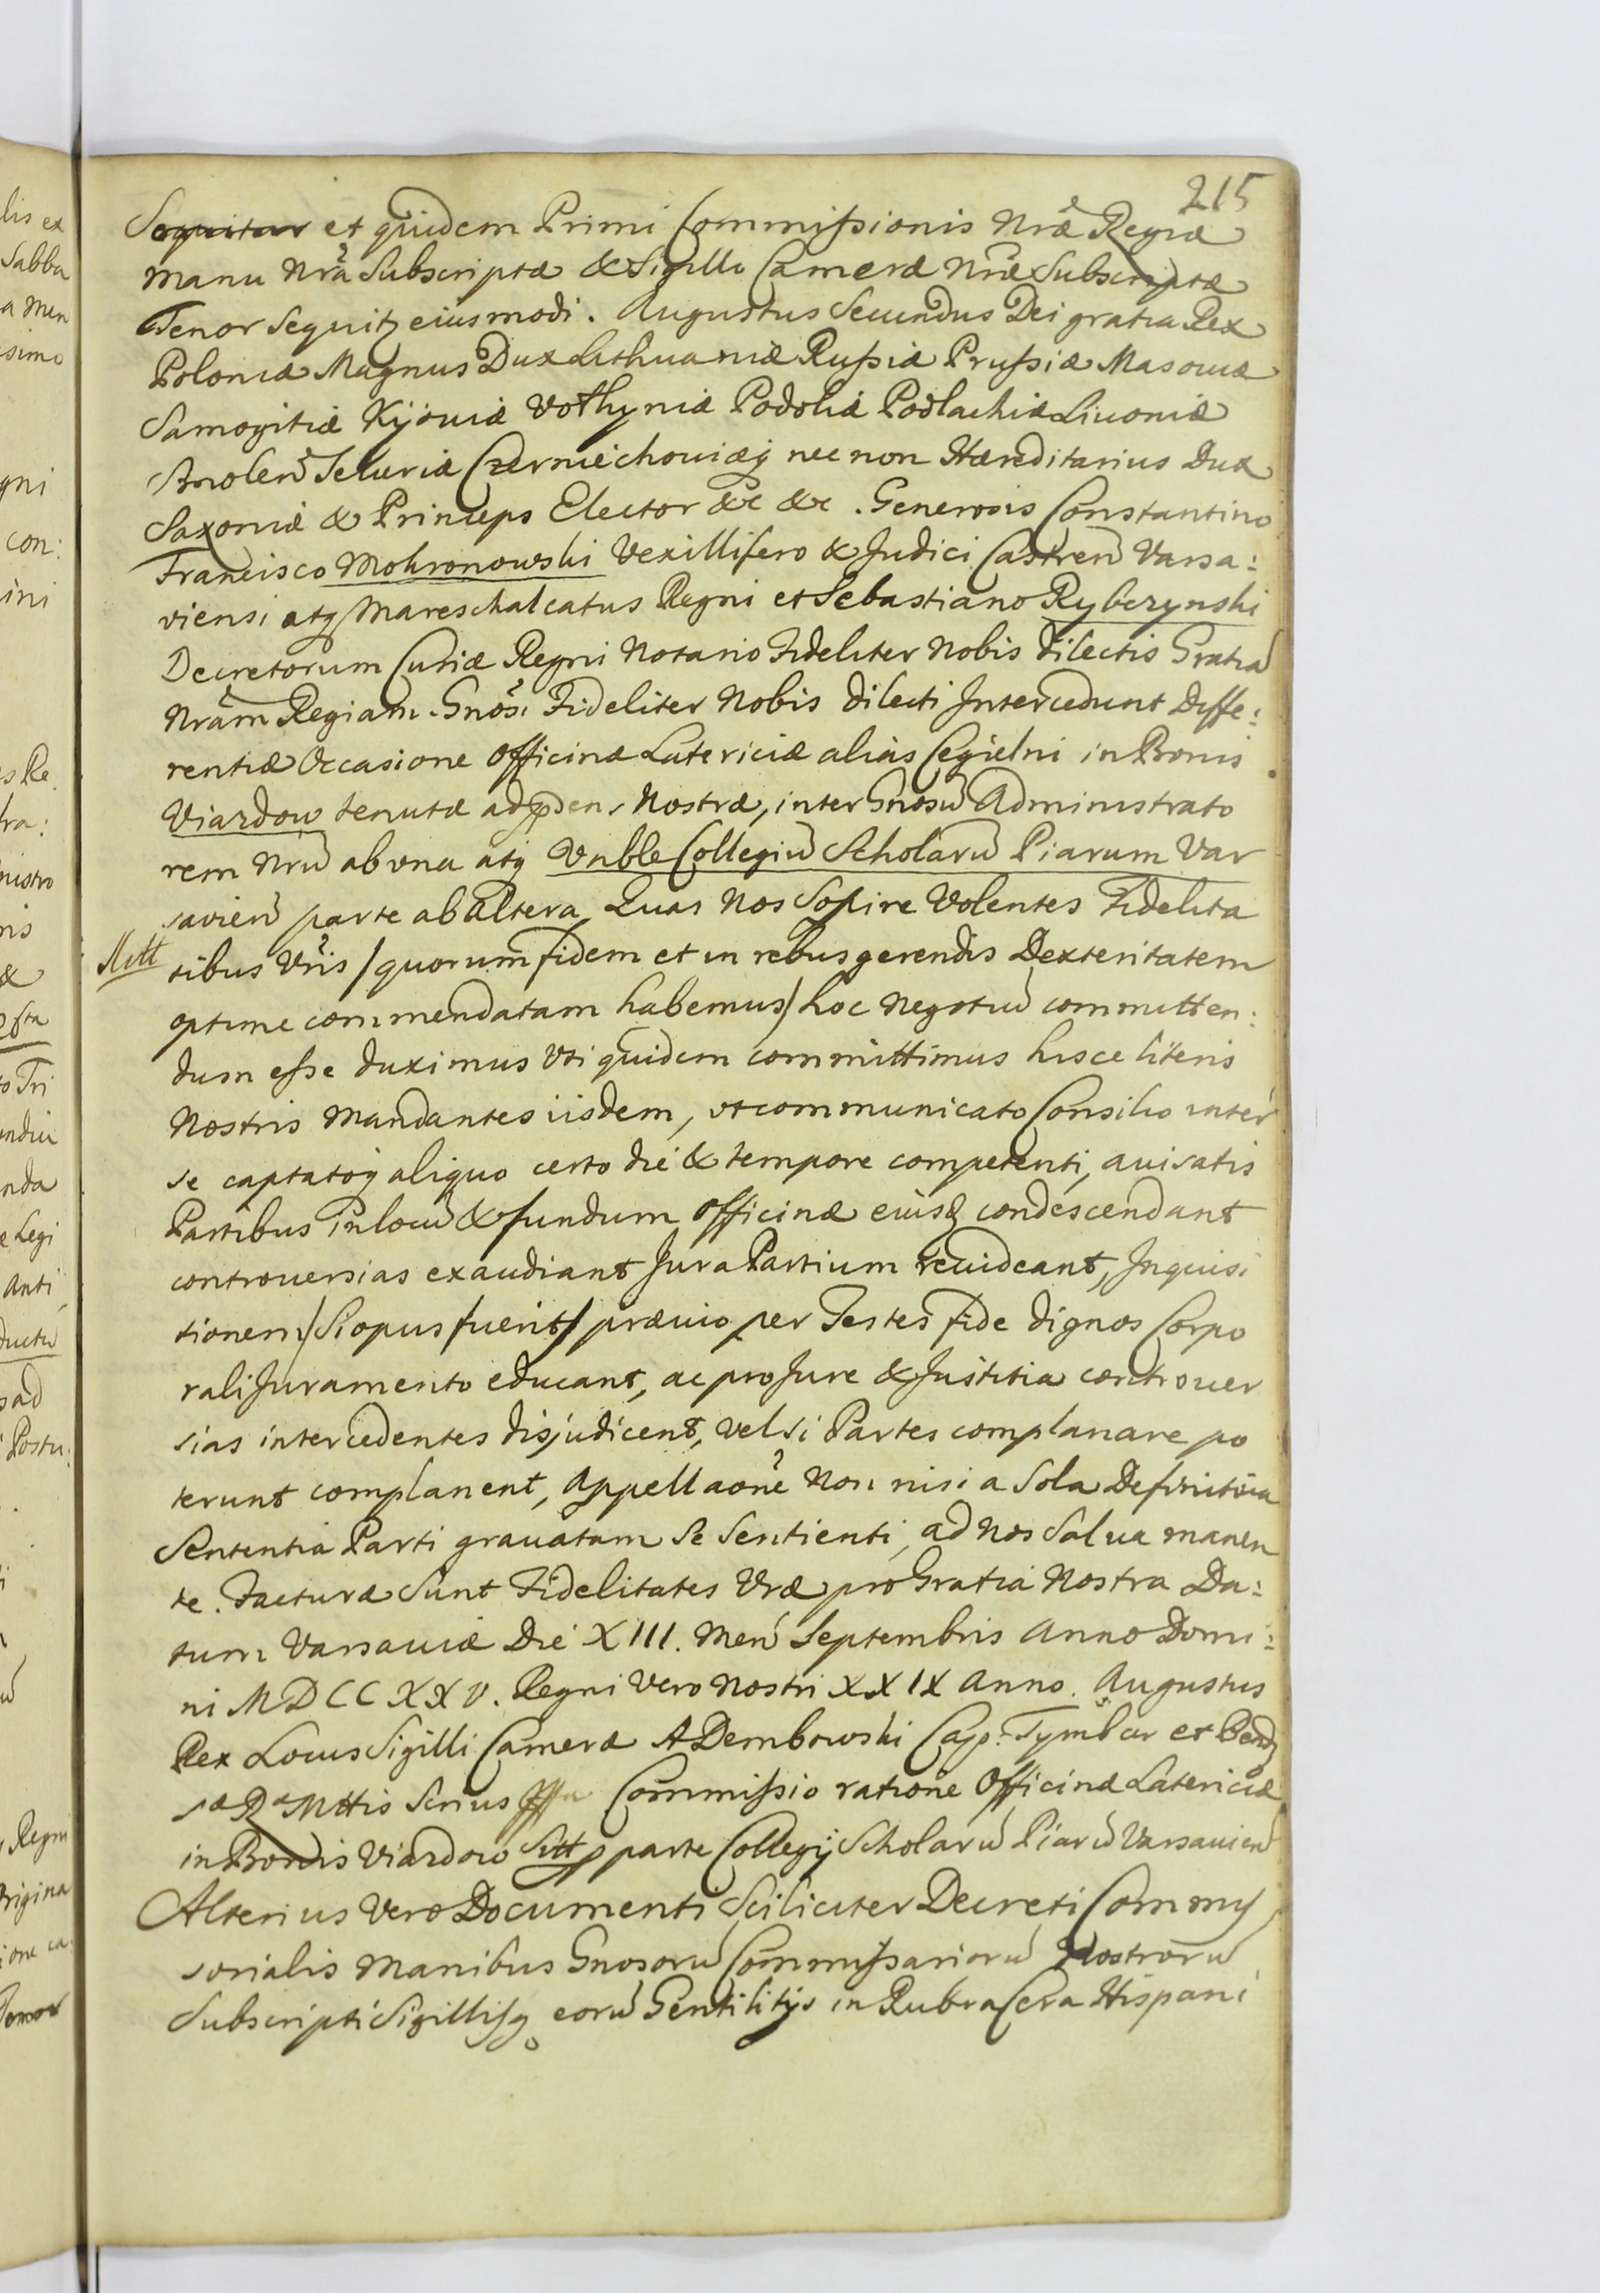 215
Sequitur et quidem Primi Commißionis Nræ Regiæ
Manu Nra Subscriptæ & Sigillo Cameræ Nræ Subscriptæ
Tenor Sequitz eiusmodi. Augustus Secundus Dei gratia Rex
Poloniæ Magnus Dux Lithuaniæ Rußiæ Prußiæ Masouiæ
Samogitiæ Kijouiæ Volhyniæ Podoliæ Podlachiæ Liuoniæ
Smolen Seueriæ Czerniechouiæq nec non Hæreditarius Dux
Saxoniæ & Princeps Elector &c &c. Generosis Constantino
Francisco Mokronowski Vexillifero & Judici Castren Varsa:
viensi atq Mareschalcatus Regni et Sebastiano Rybczynski
Decretorum Curiæ Regni Notario Fideliter Nobis dilectis Gratia
Nram Regiam. Gnosi Fideliter Nobis dilecti Intercedunt Diffe:
rentiæ Occasione Officinæ Latericiæ alias Cegielni in Bonis
Viazdow tenutæ ad Nostræ, inter Gnosu Administrato
rem Nru ab vna atq Vnble Collegiu Scholaru Piarum Var
savien parte ab altera, Quas Nos Sopire Volentes Fidelita
Mtt
tibus Vris / quorum fidem et in rebus gerendis Dexteritatem
optime commendatam habemus / hoc Negotiu committen:
dum eße duximus Vti quidem committimus hisce literis
Nostris Mandantes iisdem, vt communicato Consilio inter
se captatoq aliquo certo die & tempore competenti, auisatis
Partibus in locu & fundum Officinæ eiusd condescendant
controuersias exaudiant Jura Partium reuideant, Inquisi
tionem / Si opus fuerit / præuio per Testes fide dignos Corpo
rali Juramento educant, ac pro Jure & Justitia controuer
sias intercedentes disjudicent, vel si Partes complanare po
terunt complanent, Appellaone Non nisi a Sola Definitiua
Sententia Parti grauatam Se Sentienti, ad Nos Salua manen
te. Facturæ Sunt Fidelitates Vræ pro Gratia Nostra Da:
tum Varsauiæ Die XIII. Men Septembris Anno Domi:
ni MDCCXXV. Regni Vero Nostri XXIX Anno. Augustus
Rex Locus Sigilli Cameræ A Dembowski Cap: Tymbar et
Mttis Scrius Commißio ratione Officinæ Latericiæ
in Bonis Viazdow Sttt p parte Collegij Scholaru Piaru Varsauien
Alterius Vero Documenti Scilicter Decreti Commiß
sorialis Manibus Gnosoru Commißarioru Nostroru
Subscripti Sigillisq eoru Gentilitijs in Rubra Cera Hispani